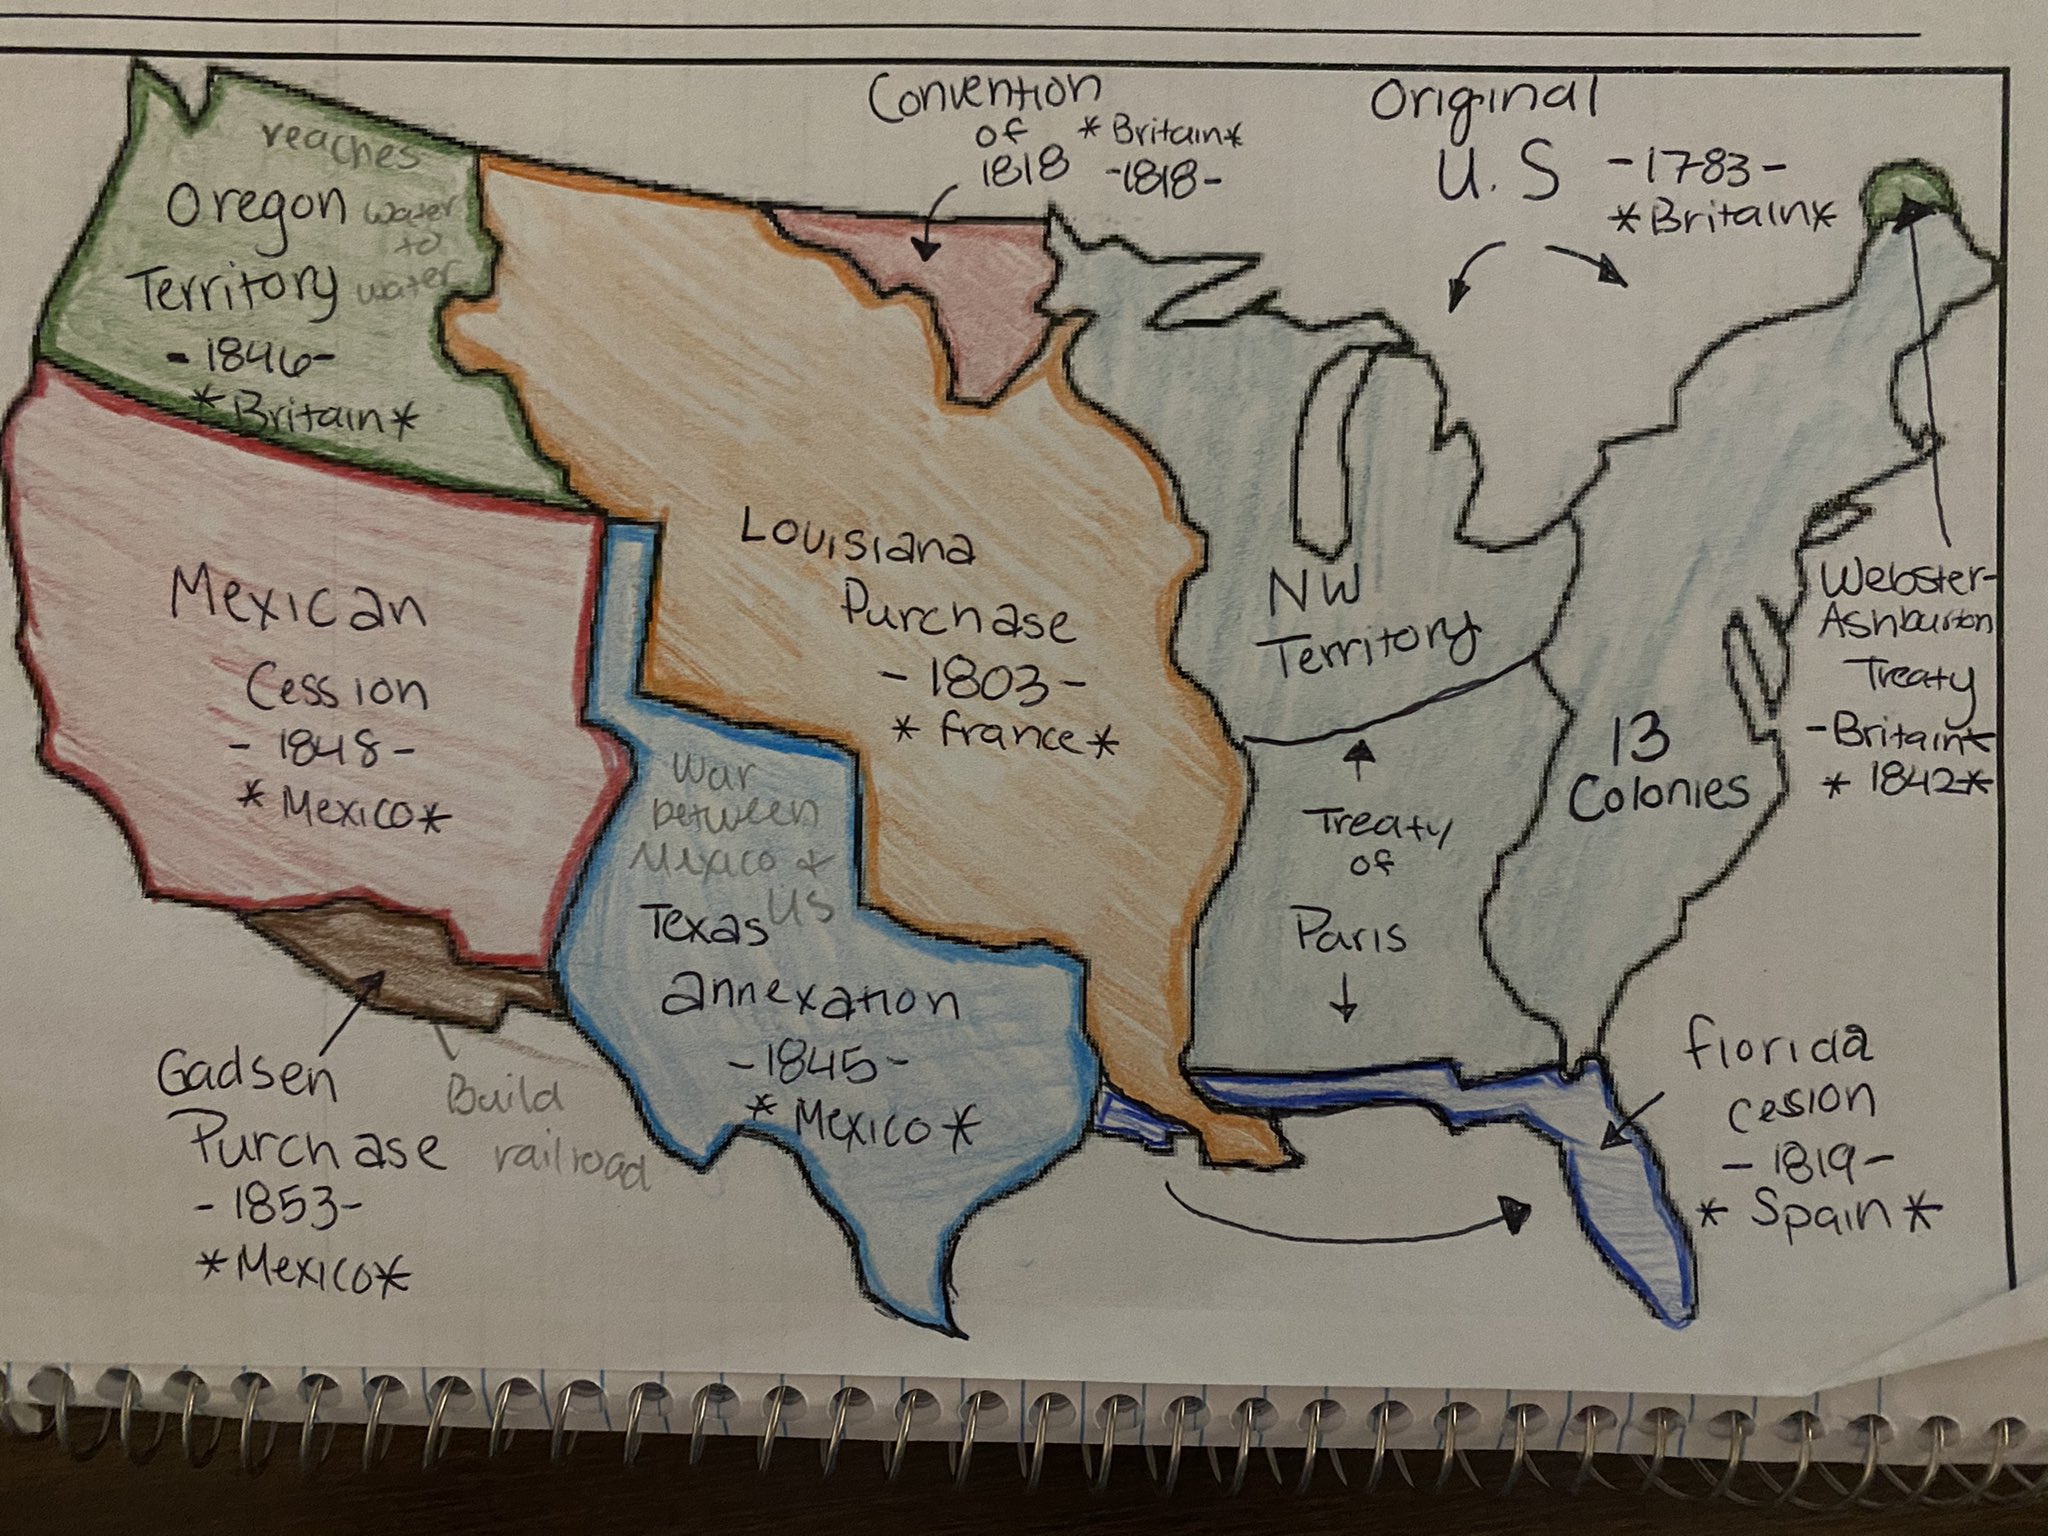 Convention
of
1818
*Britain*
-1818-
Original
U.S
-1783-
*Britain*
reaches
water
to
water
Oregon
Territory
-1846-
*Britain*
Mexican
Cession
-1848-
*Mexico*
Louisiana
Purchase
-1803-
*France*
NW
Territory
13
Colonies
Treaty
of
Paris
Webster-
Ashburton
Treaty
-Britain*
*1842*
War
between
Mexico +
US
Texas
annexation
-1845-
*Mexico*
Gadsen
Purchase
-1853-
*Mexico*
Build
railroad
Florida
cession
-1819-
*Spain*